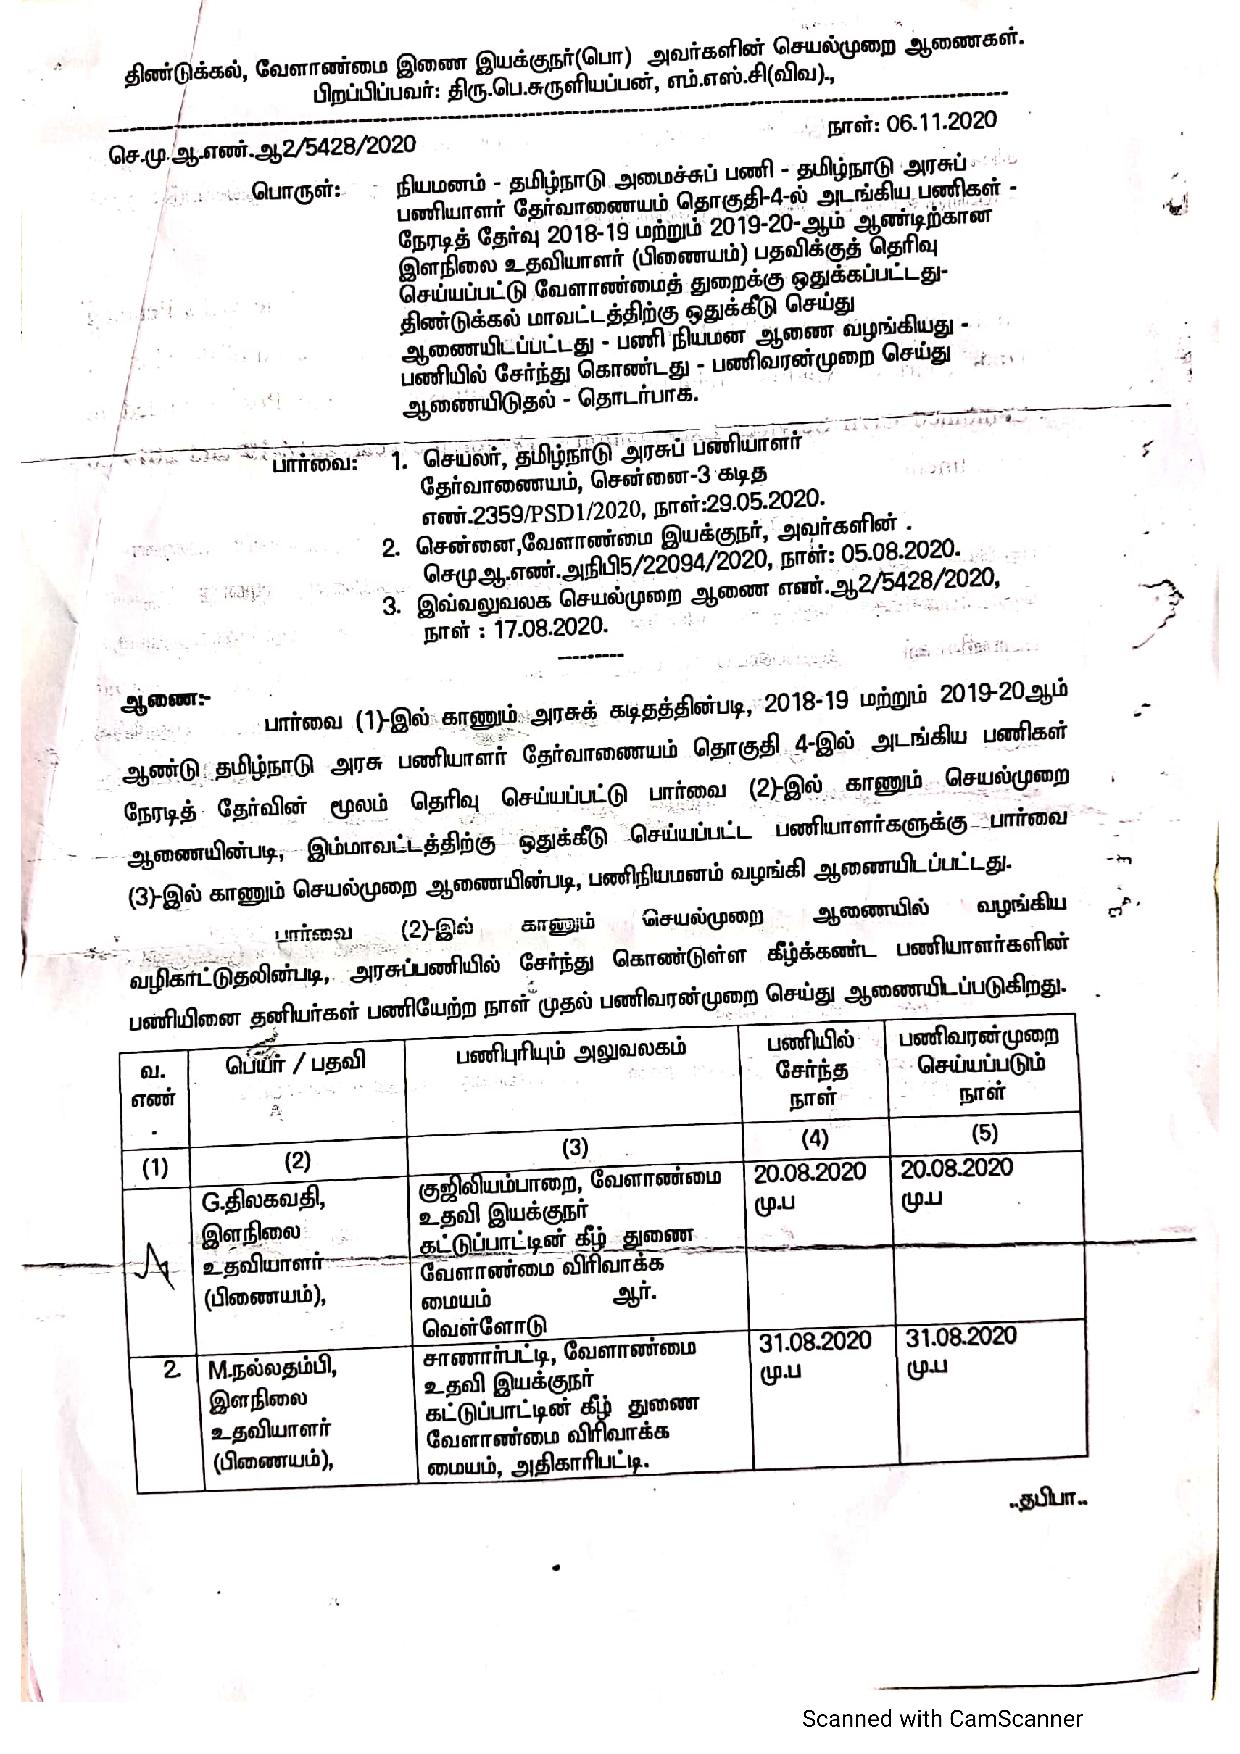 திண்டுக்கல், வேளாண்மை இணை இயக்குநர்(பொ) அவர்களின் செயல்முறை ஆணைகள்.
பிறப்பிப்பவர்: திரு.பெ.சுருளியப்பன், எம்.எஸ்.சி(விவ).,
செ.மு.ஆ.எண்.ஆ2/5428/2020
நாள்: 06.11.2020
பொருள்: நியமனம் - தமிழ்நாடு அமைச்சுப் பணி - தமிழ்நாடு அரசுப்
பணியாளர் தேர்வாணையம் தொகுதி-4-ல் அடங்கிய பணிகள் -
நேரடித் தேர்வு 2018-19 மற்றும் 2019-20-ஆம் ஆண்டிற்கான
இளநிலை உதவியாளர் (பிணையம்) பதவிக்குத் தெரிவு
செய்யப்பட்டு வேளாண்மைத் துறைக்கு ஒதுக்கப்பட்டது-
திண்டுக்கல் மாவட்டத்திற்கு ஒதுக்கீடு செய்து
ஆணையிடப்பட்டது - பணி நியமன ஆணை வழங்கியது -
பணியில் சேர்ந்து கொண்டது - பணிவரன்முறை செய்து
ஆணையிடுதல் - தொடர்பாக.
பார்வை: 1. செயலர், தமிழ்நாடு அரசுப் பணியாளர்
தேர்வாணையம், சென்னை-3 கடித
எண்.2359/PSD1/2020, நாள்:29.05.2020.
2. சென்னை,வேளாண்மை இயக்குநர், அவர்களின் .
செமுஆ.எண்.அநிபி5/22094/2020, நாள்: 05.08.2020.
3. இவ்வலுவலக செயல்முறை ஆணை எண்.ஆ2/5428/2020,
நாள் : 17.08.2020.
ஆணை:-
பார்வை (1)-இல் காணும் அரசுக் கடிதத்தின்படி, 2018-19 மற்றும் 2019-20ஆம்
ஆண்டு தமிழ்நாடு அரசு பணியாளர் தேர்வாணையம் தொகுதி 4-இல் அடங்கிய பணிகள்
நேரடித் தேர்வின் மூலம் தெரிவு செய்யப்பட்டு பார்வை (2)-இல் காணும் செயல்முறை
ஆணையின்படி, இம்மாவட்டத்திற்கு ஒதுக்கீடு செய்யப்பட்ட பணியாளர்களுக்கு பார்வை
(3)-இல் காணும் செயல்முறை ஆணையின்படி, பணிநியமனம் வழங்கி ஆணையிடப்பட்டது.
பார்வை (2)-இல் காணும் செயல்முறை ஆணையில் வழங்கிய
வழிகாட்டுதலின்படி, அரசுப்பணியில் சேர்ந்து கொண்டுள்ள கீழ்க்கண்ட பணியாளர்களின்
பணியினை தனியர்கள் பணியேற்ற நாள் முதல் பணிவரன்முறை செய்து ஆணையிடப்படுகிறது.
வ.
எண்
.
பெயர் / பதவி
பணிபுரியும் அலுவலகம்
பணியில்
சேர்ந்த
நாள்
பணிவரன்முறை
செய்யப்படும்
நாள்
(1) (2) (3) (4) (5)
G.திலகவதி,
இளநிலை
உதவியாளர்
(பிணையம்),
குஜிலியம்பாறை, வேளாண்மை
உதவி இயக்குநர்
கட்டுப்பாட்டின் கீழ் துணை
வேளாண்மை விரிவாக்க
மையம் ஆர்.
வெள்ளோடு
20.08.2020
மு.ப
20.08.2020
மு.ப
2.
M.நல்லதம்பி,
இளநிலை
உதவியாளர்
(பிணையம்),
சாணார்பட்டி, வேளாண்மை
உதவி இயக்குநர்
கட்டுப்பாட்டின் கீழ் துணை
வேளாண்மை விரிவாக்க
மையம், அதிகாரிபட்டி.
31.08.2020
மு.ப
31.08.2020
மு.ப
..தபிபா..
Scanned with CamScanner